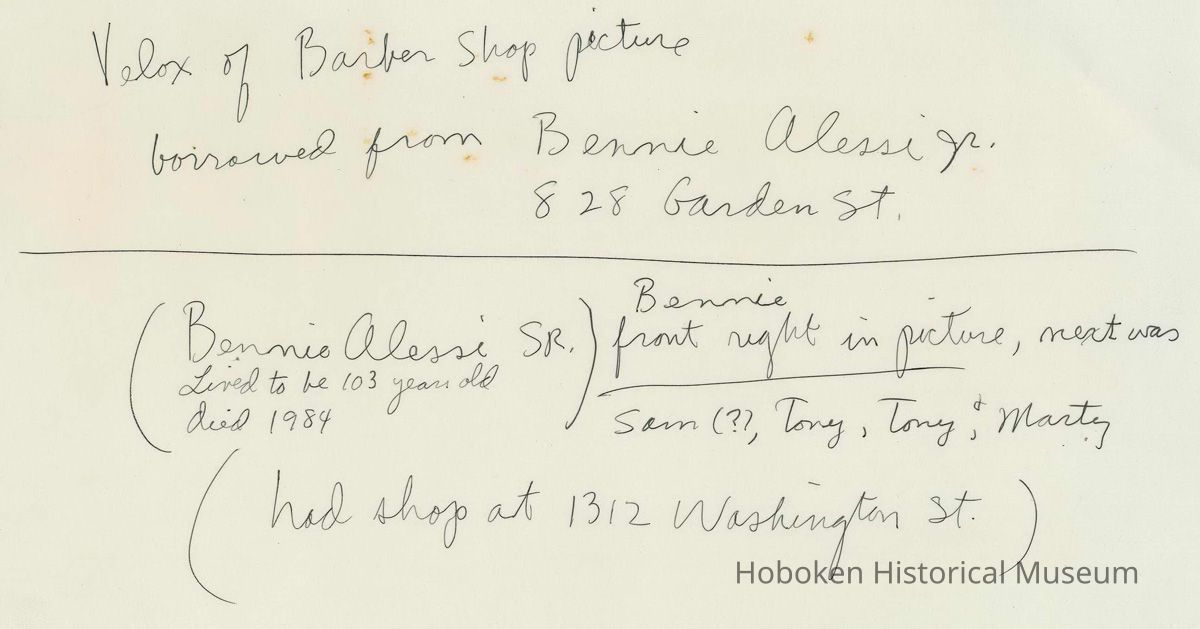 Velox of Barber Shop picture
borrowed from Bennie Alessi Jr.
828 Garden St.
(Bennie Alessi SR.)
Lived to be 103 years old
died 1984
Bennie
front right in picture, next was
Sam (??, Tony, Tony, & Marty
(had shop at 1312 Washington St.)
Hoboken Historical Museum